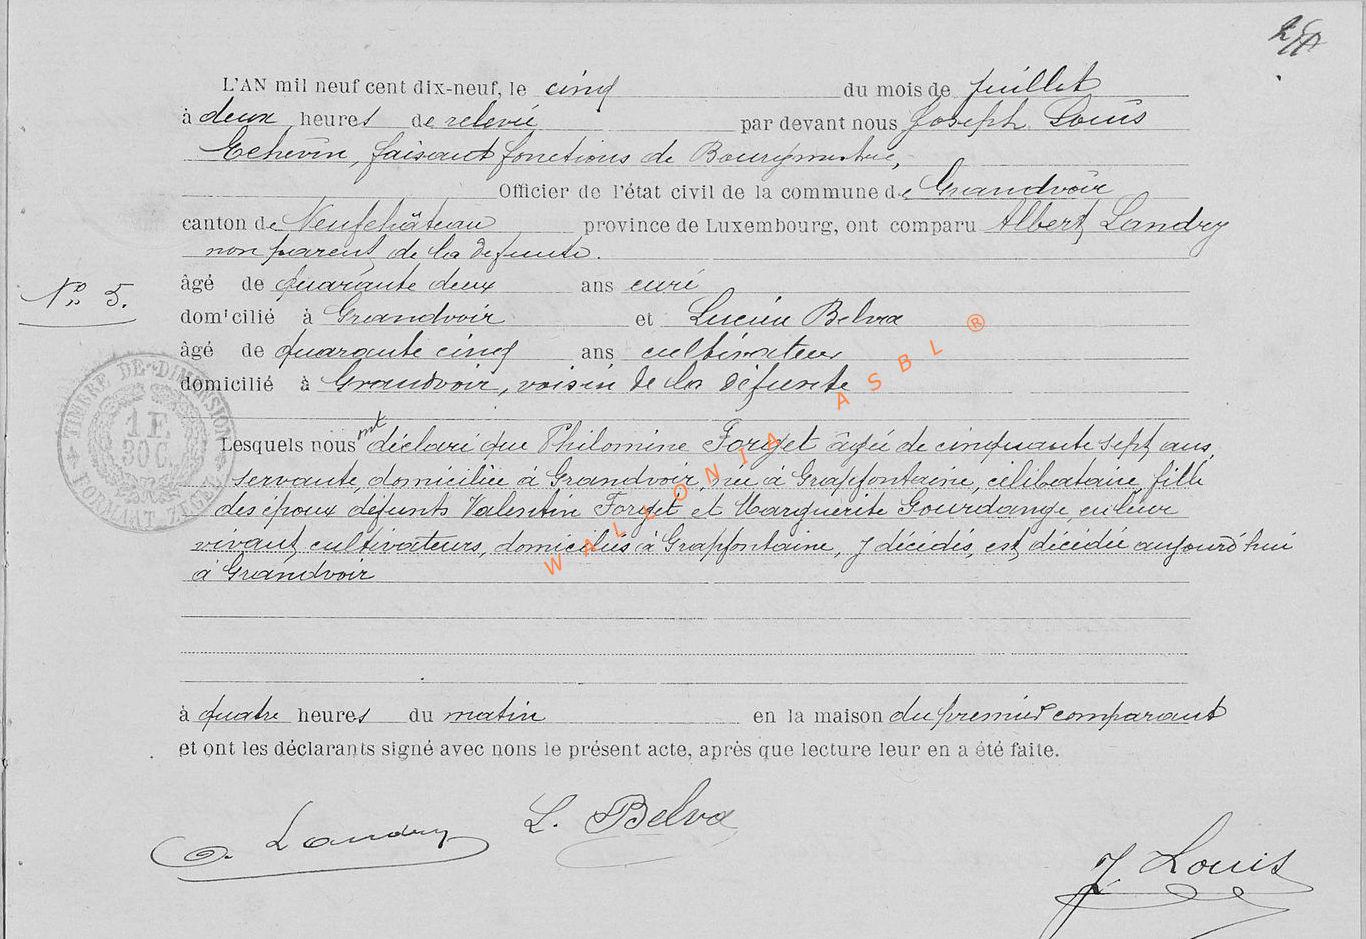 L'AN mil neuf cent dix-neuf, le cinq du mois de juillet
à deux heures de relevée par devant nous Joseph Louis
Echevin, faisant fonctions de Bourgmestre,
Officier de l'état civil de la commune de Grandvoir
canton de Neufchâteau province de Luxembourg, ont comparu Albert Landry
non parent de la défunte.
N° 5.
âgé de quarante deux ans curé
domicilié à Grandvoir et Lucien Belva
âgé de quarante cinq ans cultivateur
domicilié à Grandvoir, voisin de la défunte
TIMBRE DE DIMENSION
1 F. 30 C.
FORMAAT ZEGEL
Lesquels nous ont déclaré que Philomine Forget âgée de cinquante sept ans,
servante, domiciliée à Grandvoir, née à Grapfontaine, célibataire, fille
des époux défunts Valentin Forget et Marguerite Gourdange, en leur
vivant cultivateurs, domiciliés à Grapfontaine, y décédés, est décédée aujourd'hui
à Grandvoir
à quatre heures du matin en la maison du premier comparant
et ont les déclarants signé avec nous le présent acte, après que lecture leur en a été faite.
Landry
L. Belva
J. Louis
WALLONIA ASBL ®